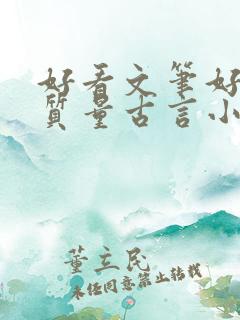 好看文笔好
质量古言小
董立民
未经同意禁止转载